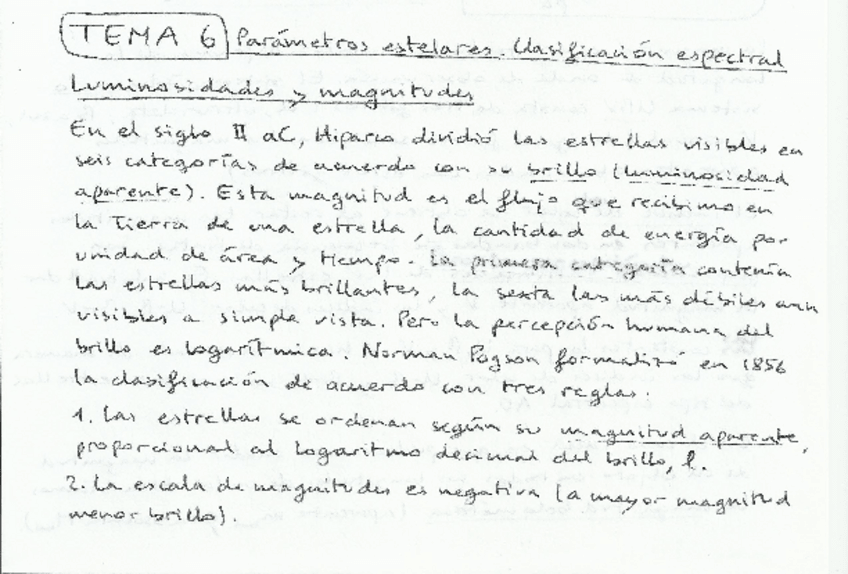 TEMA 6 Parámetros estelares. Clasificación espectral
Luminosidades y magnitudes
En el siglo II aC, Hiparco dividió las estrellas visibles en
seis categorías de acuerdo con su brillo (luminosidad
aparente). Esta magnitud es el flujo que recibimo en
la Tierra de una estrella, la cantidad de energía por
unidad de área y tiempo. La primera categoría contenía
las estrellas más brillantes, la sexta las más débiles aun
visibles a simple vista. Pero la percepción humana del
brillo es logarítmica. Norman Pogson formalizó en 1856
la clasificación de acuerdo con tres reglas.
1. Las estrellas se ordenan según su magnitud aparente,
proporcional al logaritmo decimal del brillo, l.
2. La escala de magnitudes es negativa (a mayor magnitud
menor brillo).